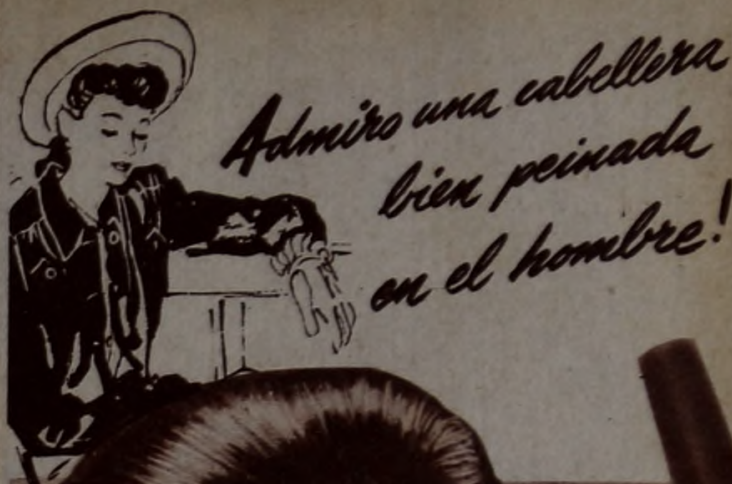 Admiro una cabellera
bien peinada
en el hombre!